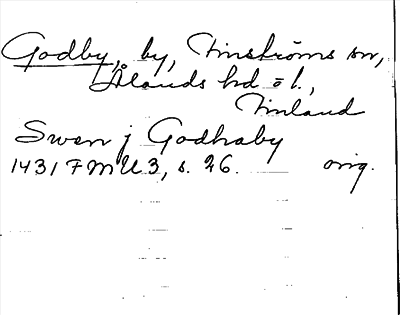 Godby, by, Finströms sn,
Ålands hd o l.,
Finland
Swen j Godhaby
1431 FMU 3, s. 26. orig.